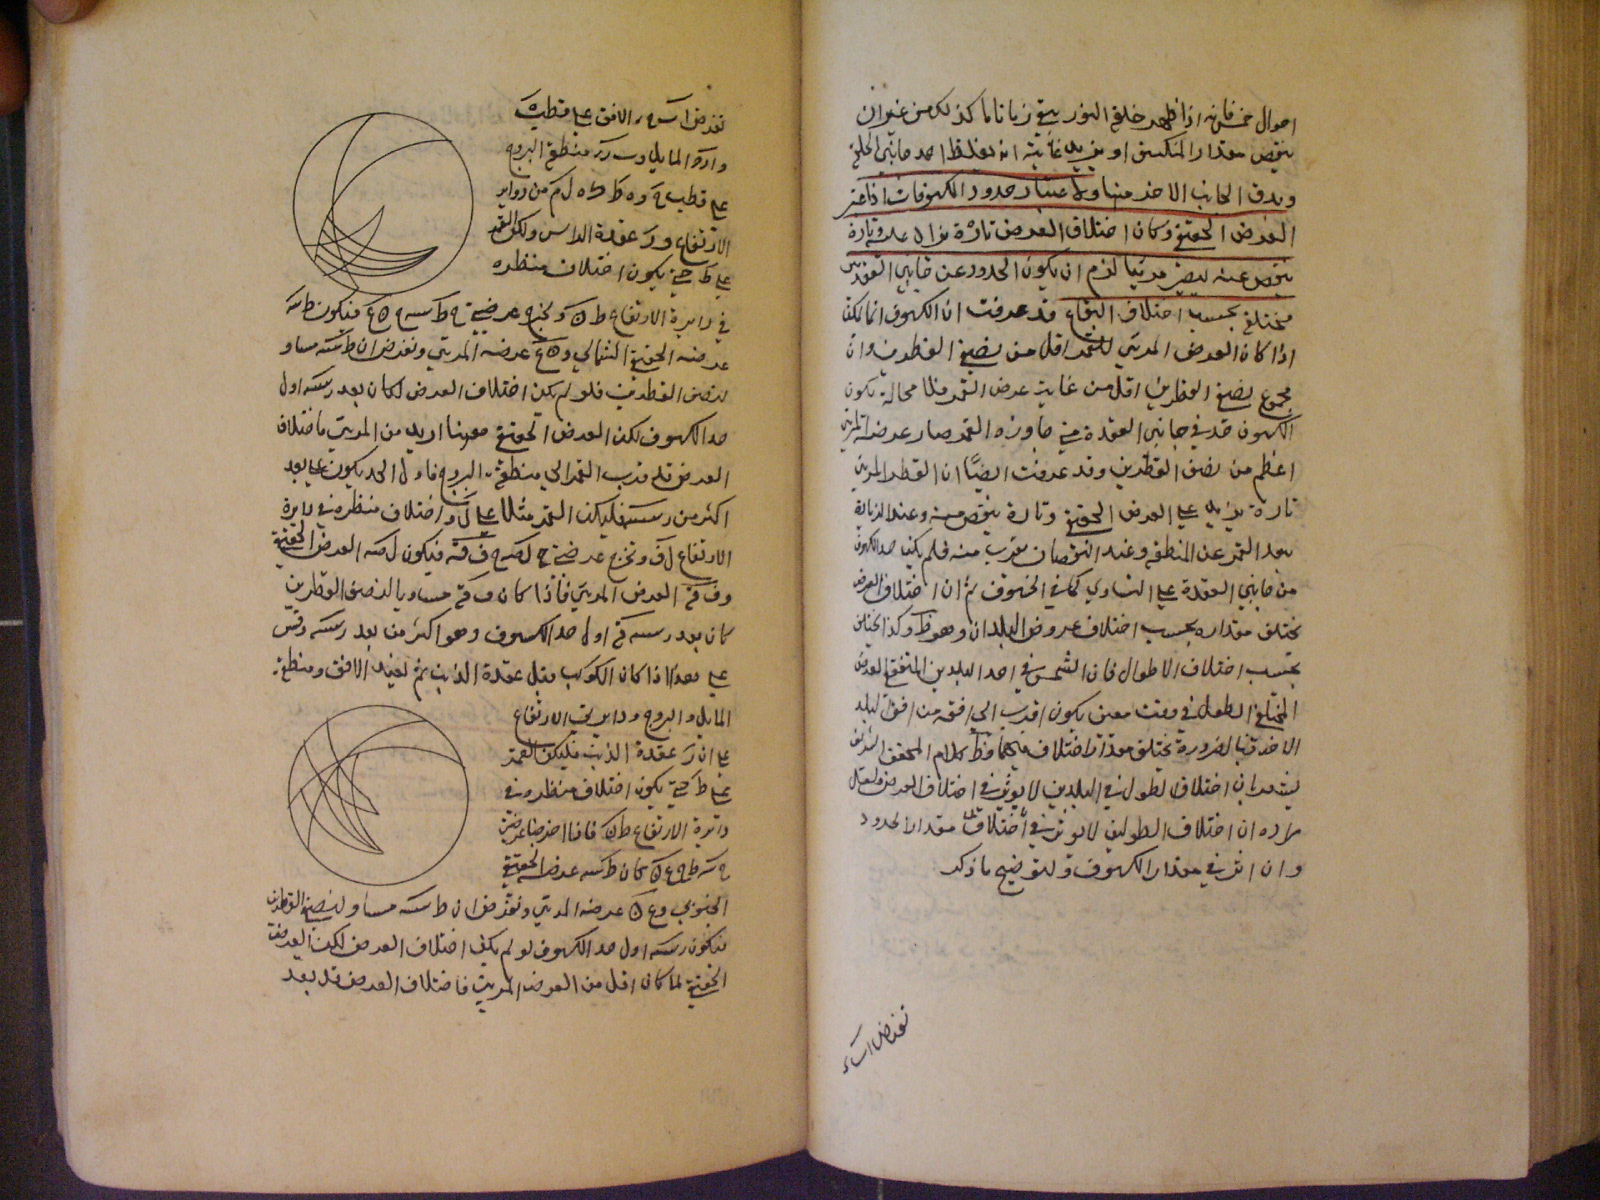 احوال خمس فانه اذا ظهر حلقة النور يبقى زمانا ما كذلك من غير ان
ينقص مقدار المنكسف او يزيد غايته انه يغلظ احد جانبي الحلقة
ويدق الجانب الاخر منها ولا اعتبار حدود الكسوفات اذا اعتبر
العرض الحقيقي وكان اختلاف العرض تارة يزاد عليه وتارة
ينقص عنه ليصير مرئيا لزم ان يكون الحدود عن جانبي العقدتين
مختلفة بحسب اختلاف البقاع قد عرفت ان الكسوف انما يكون
اذا كان العرض المرئي للقمر اقل من نصف القطرين وان
مجموع نصف القطرين اقل من غاية عرض القمر فلا محالة يكون
للكسوف حد في جانبي العقدة متى جاوزه القمر صار عرضه المرئي
اعظم من نصف القطرين وقد عرفت ايضا ان العرض المرئي
تارة يزيد على العرض الحقيقي وتارة ينقص منه وعند الزيادة
يبعد القمر عن المنطقة وعند النقصان يقرب منه فلم يكن حد الكسوف
من جانبي العقدة على التساوي كما في الخسوف ثم ان اختلاف العرض
يختلف مقداره بحسب اختلاف عروض البلدان وهو ظ وكذا يختلف
بحسب اختلاف الاطوال فان الشمس في احد البلدين المتفقي العرض
المختلفي الطول في وقت معين يكون اقرب الى افقه من افق البلد
الاخر فبالضرورة يختلف مقدار اختلاف فيهما فظ كلام المحقق الشريف
يشعر بان اختلاف الطول في البلدين لا يؤثر في اختلاف العرض ولعل
مراده ان اختلاف الطولين لا يؤثر في اختلاف مقدار الحدود
وان اثر في مقدار الكسوف ولتوضيح ما ذكر
نفرض ا س ء
نفرض ا س ء الافق على قطب
دائرة المايل و منطقة البروج
على قطب من دواير
الارتفاع و ر عقدة الراس وليكن القمر
على ط حتى يكون اختلاف منظره
في دايرة الارتفاع ط ونخرج عرضيتي فيكون
عرضه الحقيقي الشمالي و عرضه المرئي ونفرض ان مساو
لنصف القطرين فلو لم يكن اختلاف العرض لكان بعد اول
حد الكسوف لكن العرض الحقيقي ههنا ازيد من المرئي فاختلاف
العرض قد قرب القمر الى منطقة البروج فاول الحد يكون على بعد
اكثر من فليكن القمر مثلا على ل واختلاف منظره في دايرة
الارتفاع ل ف ونخرج عرضيتي فيكون العرض الحقيقي
و العرض المرئي فاذا كان مساويا لنصف القطرين
كان بعد اول حد الكسوف وهو اكثر من بعد وقس
على هذا اذا كان الكوكب قبل عقدة الذنب ثم لنعيد الافق ومنطقة
المايل والبروج ودايرتي الارتفاع
على ان ر عقدة الذنب فليكن القمر
على ط حتى يكون اختلاف منظره في
دائرة الارتفاع ط ك فاذا اخرجنا عرضيتي
كان عرضه الحقيقي
الجنوبي و عرضه المرئي ونفرض ان مساو لنصف القطرين
فيكون اول حد الكسوف لو لم يكن اختلاف العرض لكن العرض
الحقيقي لما كان اقل من العرض المرئي فاختلاف العرض قد بعد